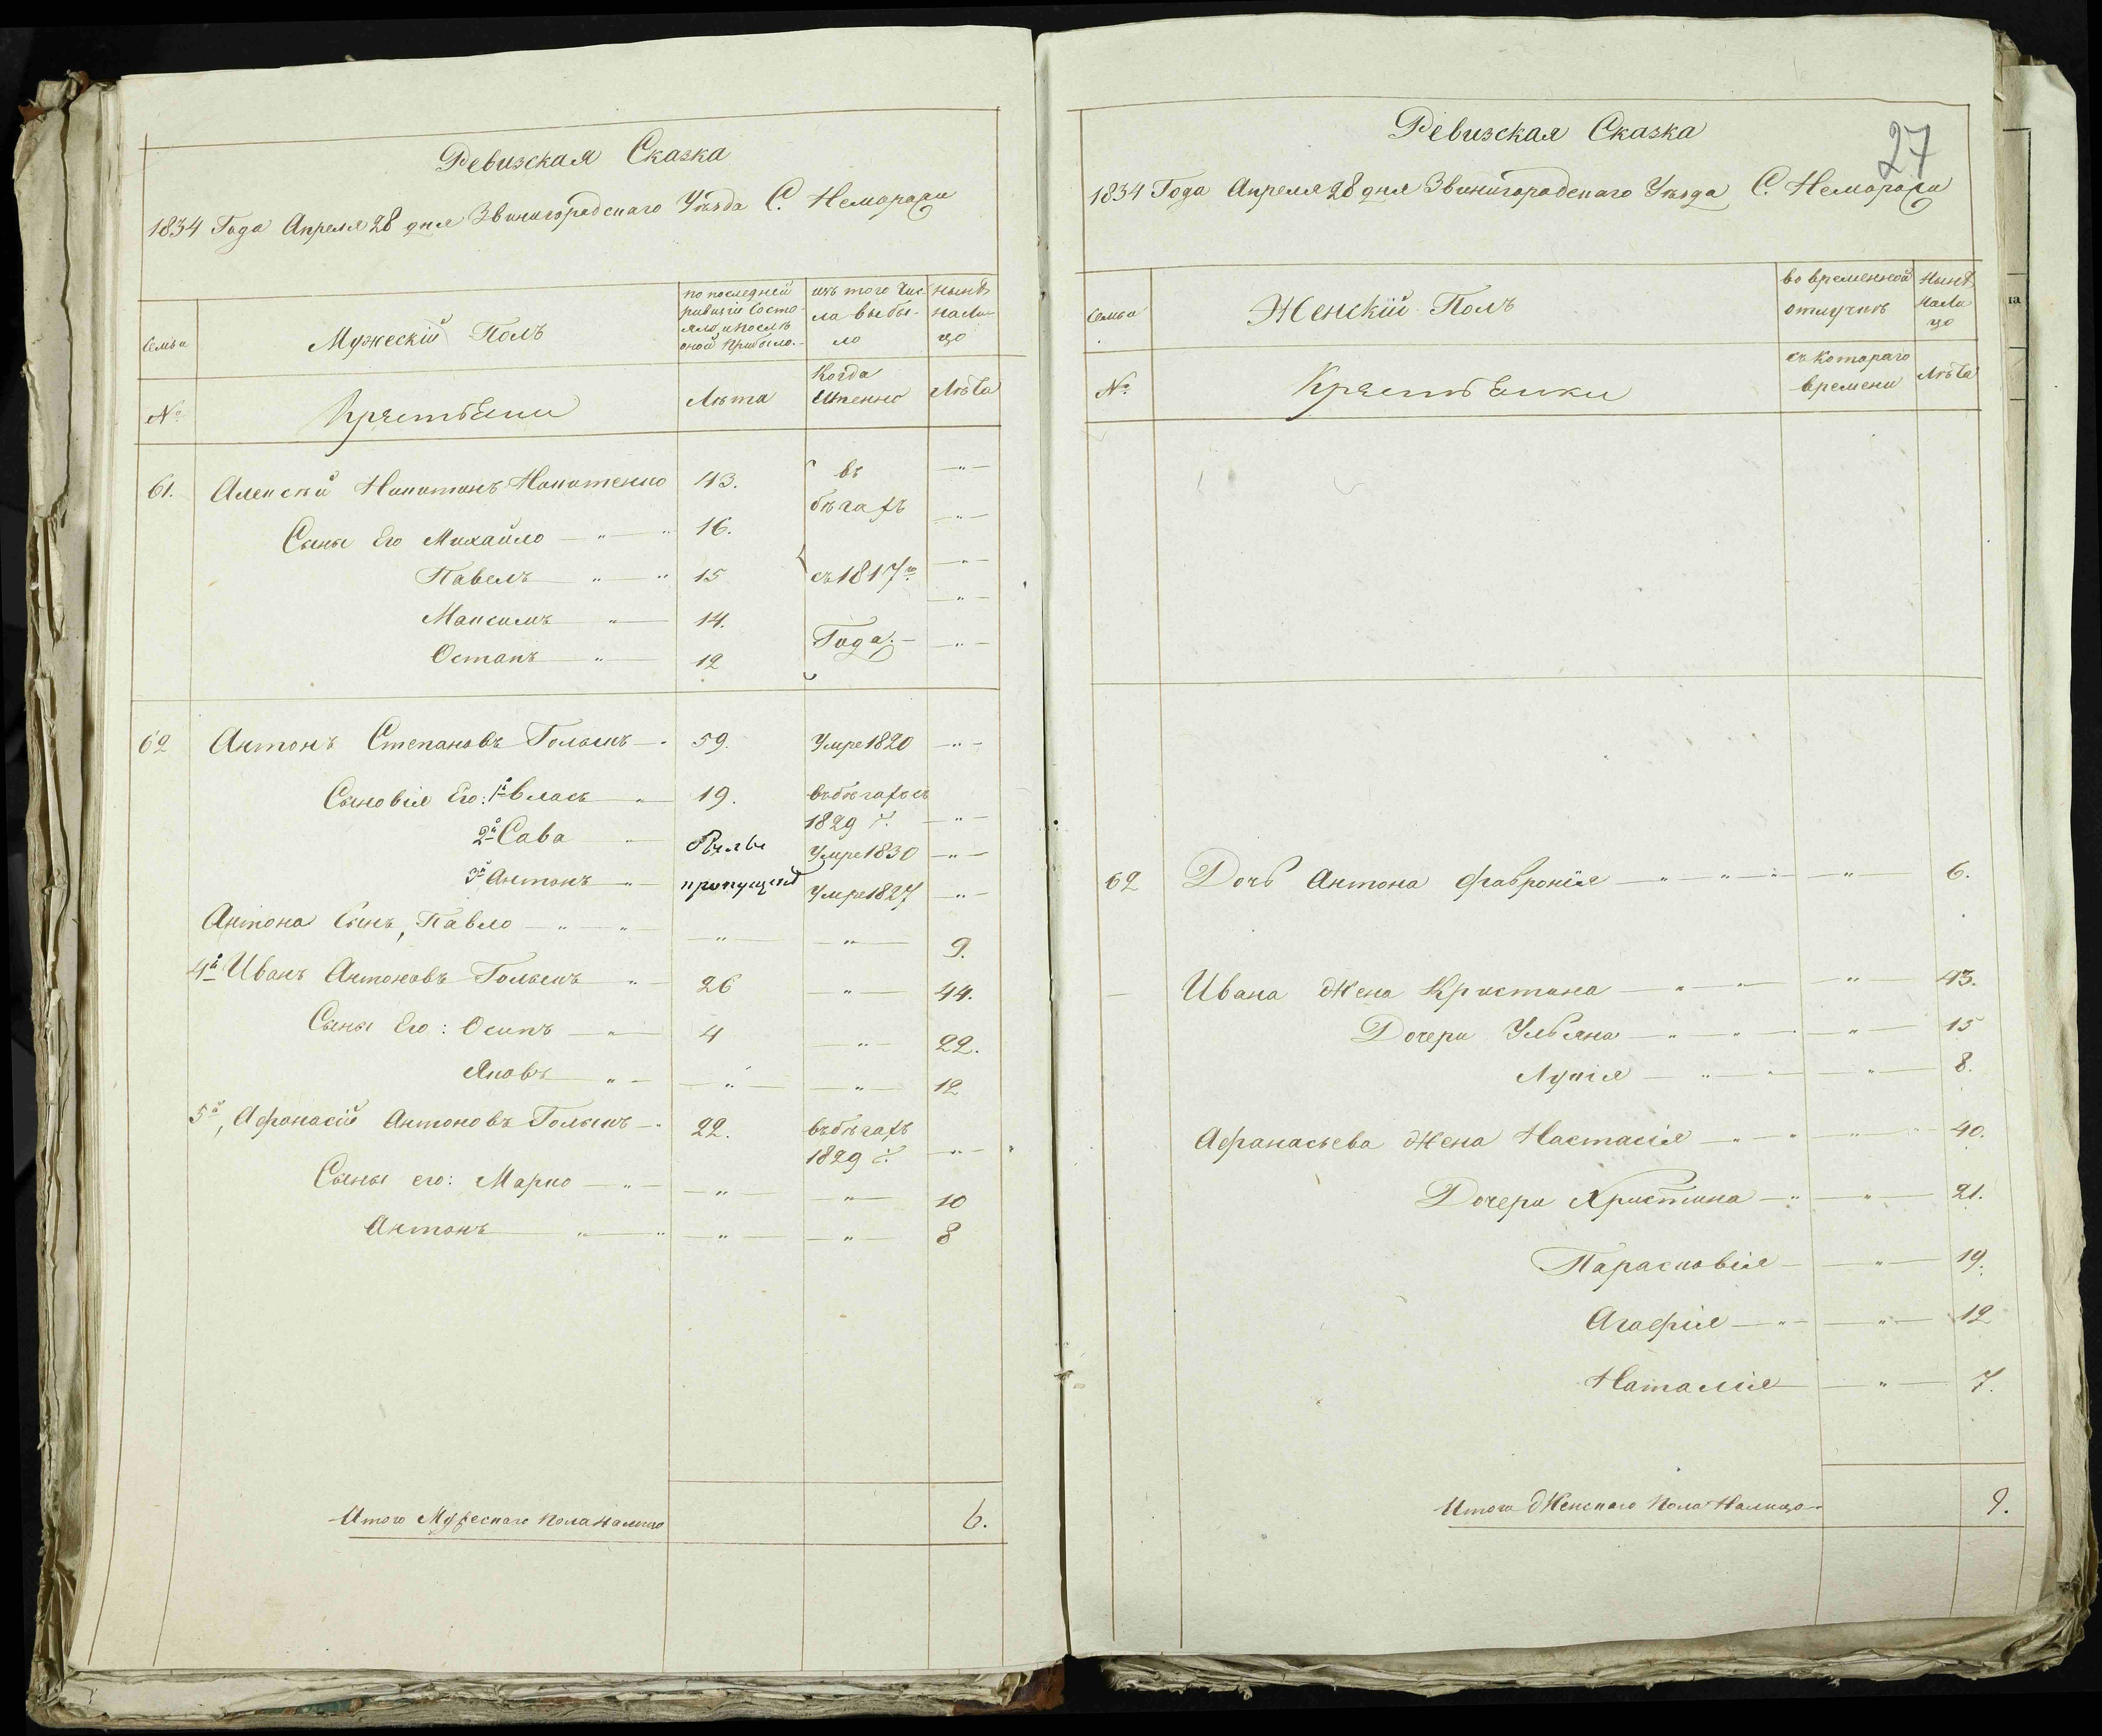 Ревизская Сказка
1834 Года Апреля 28 дня Звинигородскаго Уѣзда С. Неморожи
Семьи
Мужескій Полъ
по последней ревизіи состояло, и послѣ оной прибыло.
изъ того числа выбыло
нынѣ налицо
№
Крестьяни
Лѣта
Когда Именно
Лѣта
61. Алексѣй 43. въ бѣгахъ съ 1817го Года. —„—
Сыны Его Михайло —„—„ 16. —„—
Павелъ —„—„ 15 —„—
Максимъ —„— 14. —„—
Остапъ —„— 12 —„—
62 Антонъ Степановъ Голыкъ —. 59. Умре 1820 —„—
Сыновія Его: 1й Власъ —„ 19. въ бѣгахъ съ 1829 г. —„—
2й Сава —„ Были Умре 1830 —„—
3й Антонъ —„— пропущены Умре 1827 —„—
Антона Сынъ, Павло —„—„ —„— —„— 9.
4й Иванъ Антоновъ Голыкъ „— 26 —„— 44.
Сыны Его: Осипъ —„— 4 —„— 22.
Яковъ —„— —„— —„— 12
5й, Афанасій Антоновъ Голыкъ —. 22. въ бѣгахъ 1829 г. —„—
Сыны его: Марко —„— —„— —„— 10
Антонъ —„—„ —„— —„— 8
Итого Мужескаго пола налицо 6.
27
Ревизская Сказка
1834 Года Апреля 28 дня Звинигородскаго Уѣзда С. Неморожи
Семьи
Женскій Полъ
во временной отлучкѣ
Нынѣ налицо
№
Крестьянки
съ котораго времени
Лѣта
62 Дочь Антона Фавронія —„—„—„—„— 6.
— Ивана Жена Кристина —„—„—„— 43.
Дочери Ульяна —„—„—„— 15
Лукія —„—„—„— 8.
Афанасьева Жена Настасія —„—„—„— 40.
Дочери Христина —„—„— 21.
Парасковія —„— 19.
Агафія —„—„— 12
Наталія —„— 7.
Итого Женскаго Пола Налицо 9.